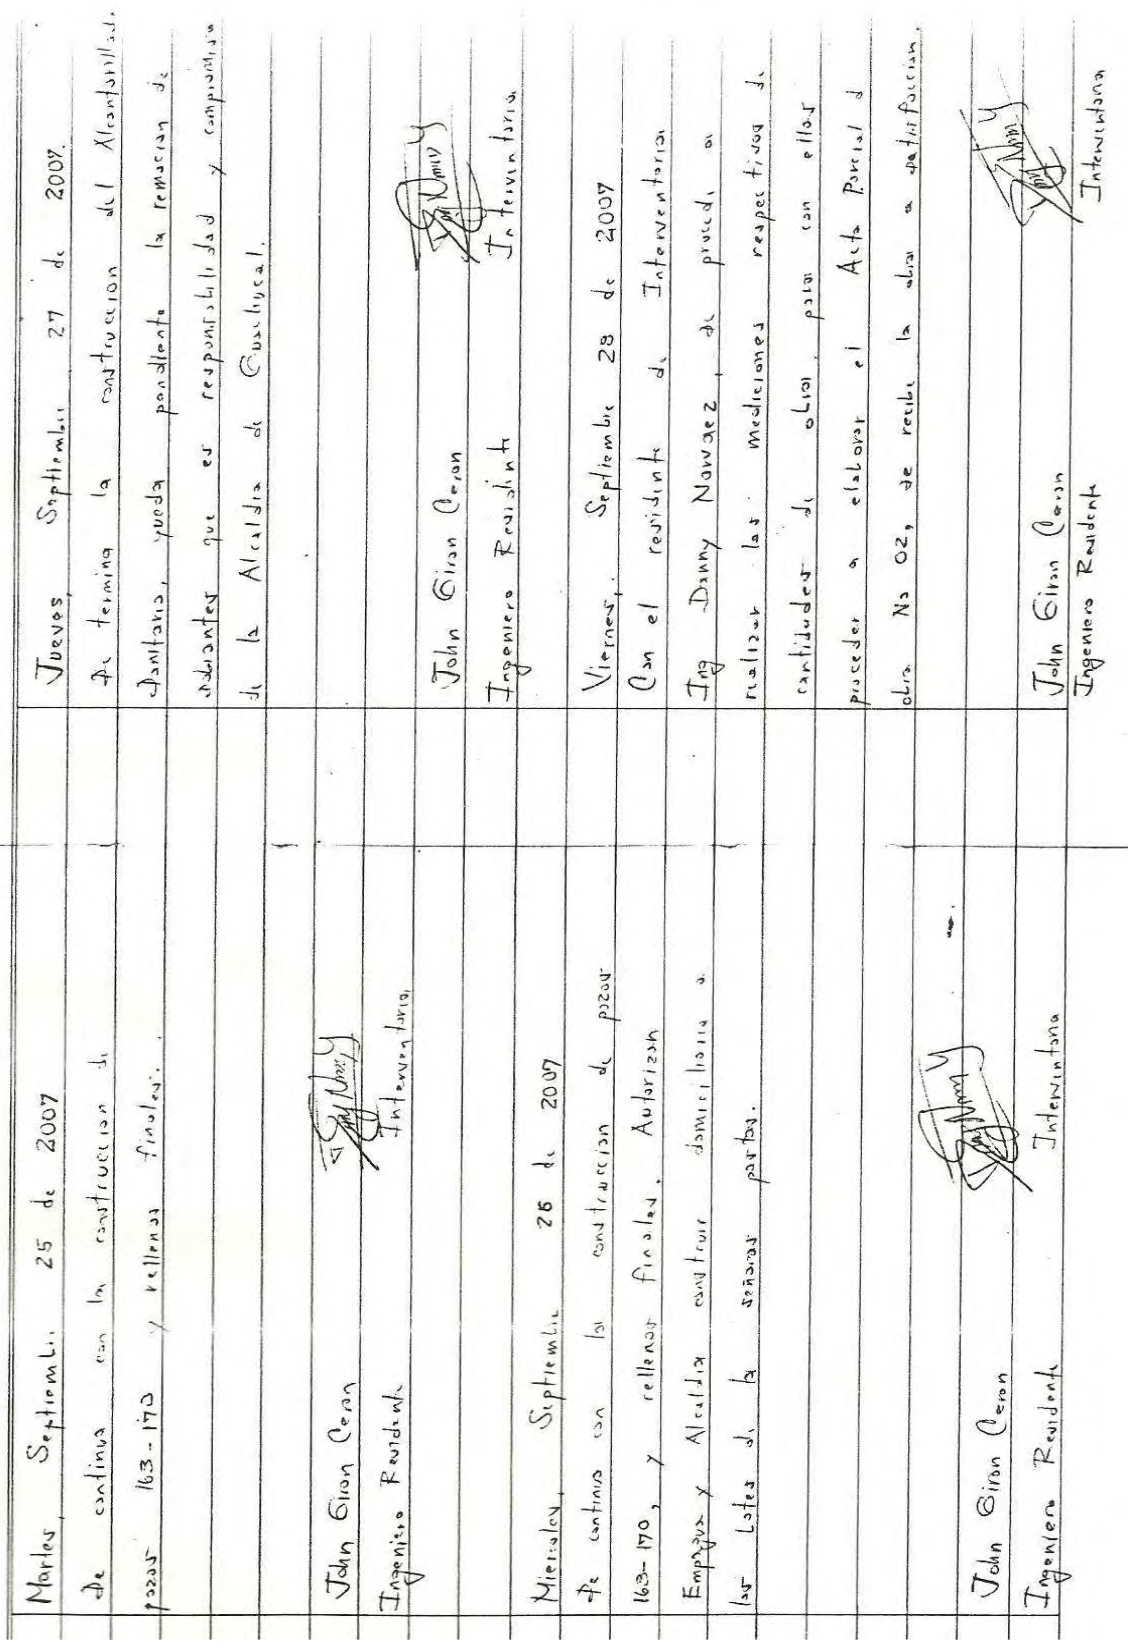 Martes, Septiembre 25 de 2007
Se continua con la construccion de
pozos 163-170 y rellenos finales.
John Giron Ceron
Ingeniero Residente Interventoria
Miercoles, Septiembre 26 de 2007
Se continua con la construccion de pozos
163-170, y rellenos finales, Autorizan
Empagua y Alcaldia construir domiciliaria a
los Lotes de la señoras
John Giron Ceron
Ingeniero Residente Interventoria
Jueves, Septiembre 27 de 2007.
Se termina la construccion del Alcantarillado
Sanitario, queda pendiente la remocion de
sobrantes que es responsabilidad y compromiso
de la Alcaldia de Gualmatal.
John Giron Ceron
Ingeniero Residente Interventoria
Viernes, Septiembre 28 de 2007
Con el residente de Interventoria
Ing Danny Narvaez, se procede a
realizar las mediciones respectivas de
cantidades de obra, para con ellas
proceder a elaborar el Acta Parcial d
obra No 02, se recibe la obra a satisfaccion.
John Giron Ceron
Ingeniero Residente Interventoria